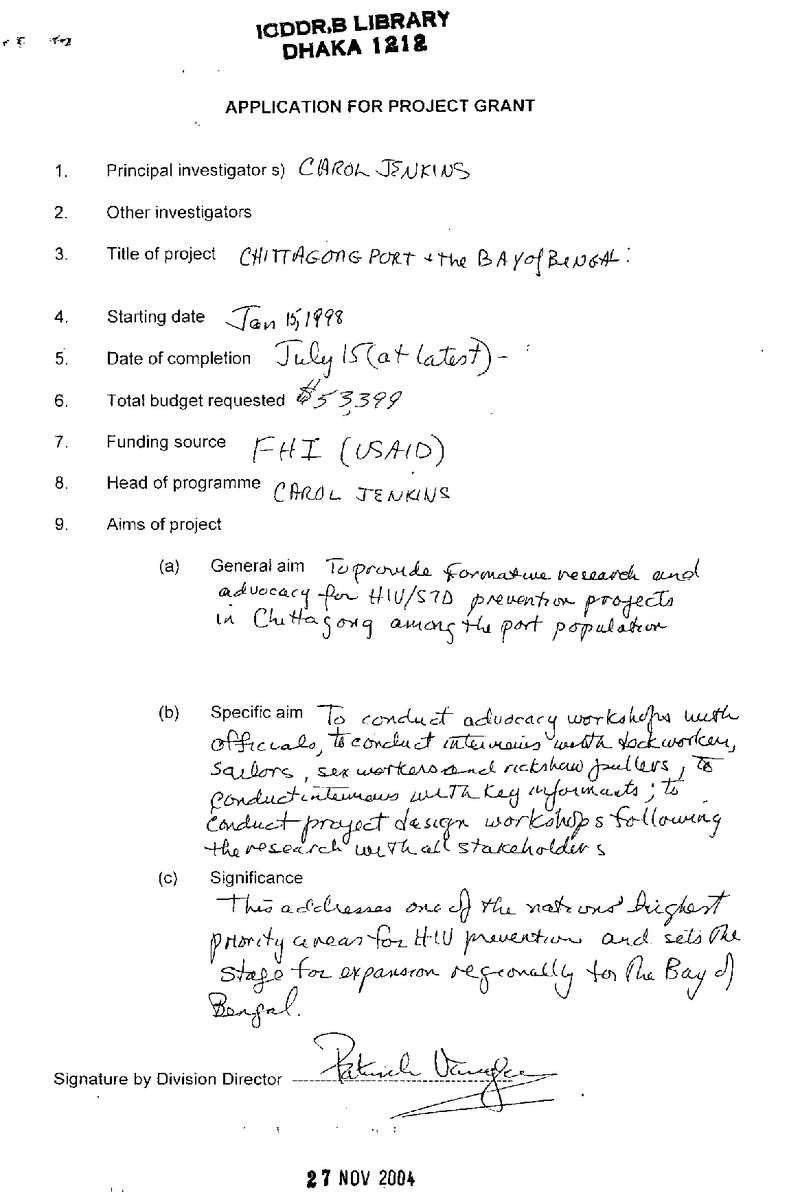 ICDDR,B LIBRARY
DHAKA 1212
APPLICATION FOR PROJECT GRANT
1. Principal investigator s) CAROL JENKINS
2. Other investigators
3. Title of project CHITTAGONG PORT + the BAY of BENGAL:
4. Starting date Jan 15, 1998
5. Date of completion July 15 (at latest) -
6. Total budget requested $53,399
7. Funding source FHI (USAID)
8. Head of programme CAROL JENKINS
9. Aims of project
(a) General aim To provide formative research and
advocacy for HIV/STD prevention projects
in Chittagong among the port population
(b) Specific aim To conduct advocacy workshops with
officials, to conduct interviews with dockworkers,
sailors, sex workers and rickshaw pullers, to
conduct interviews with key informants; to
conduct project design workshops following
the research with all stakeholders
(c) Significance
This addresses one of the nations' highest
priority areas for HIV prevention and sets the
stage for expansion regionally for the Bay of
Bengal.
Signature by Division Director Patrick Vaughan
27 NOV 2004